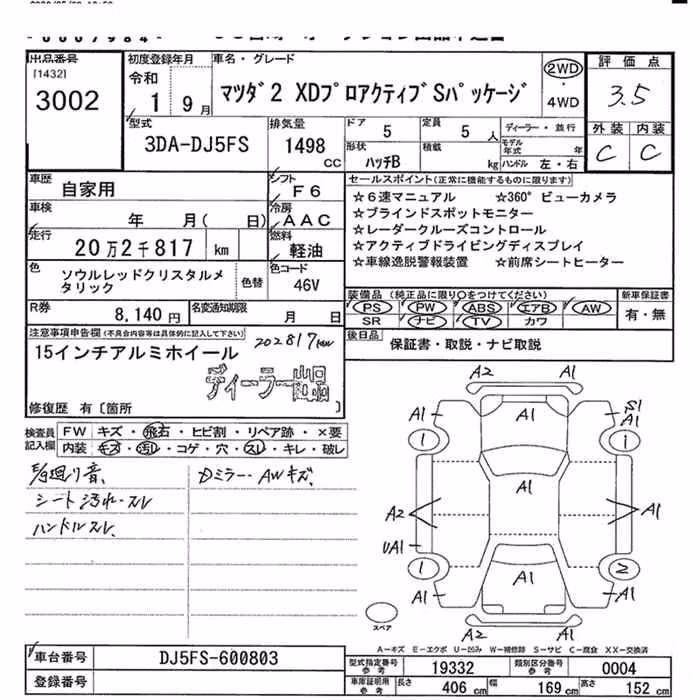 出品番号
[1432]
3002
初度登録年月
令和
1 9月
車名・グレード
マツダ2 XDプロアクティブSパッケージ
2WD
・
4WD
評価点
3.5
外装 内装
C C
型式
3DA-DJ5FS
排気量
1498
CC
ドア 5
定員 5 人
ディーラー・並行
形状
ハッチB
積載
kg
モデル年式 年
ハンドル 左・右
車歴
自家用
シフト
F6
車検
年 月( 日)
冷房
AAC
走行
20万2千817 km
燃料
軽油
色
ソウルレッドクリスタルメ
タリック
色替
色コード
46V
セールスポイント(正常に機能するものに限ります)
☆6速マニュアル ☆360°ビューカメラ
☆ブラインドスポットモニター
☆レーダークルーズコントロール
☆アクティブドライビングディスプレイ
☆車線逸脱警報装置 ☆前席シートヒーター
装備品(純正品に限り○をつけてください)
新車保証書
PS PW ABS エアB AW
SR ナビ TV カワ
有・無
R券
8,140 円
名変通知期限
月 日
後日品
保証書・取説・ナビ取説
注意事項申告欄(不具合内容等は具体的に記入して下さい)
15インチアルミホイール
202817km
ディーラー
修復歴 有〔箇所
検査員
記入欄
FW キズ・飛石・ヒビ割・リペア跡・×要
内装 キズ・汚れ・コゲ・穴・スレ・キレ・破レ
廻り音、
シート汚れ・スレ
ハンドルスレ、
Dミラー・AWキズ、
A2
A1 A1 S1
A1
1 1
A1
A2 A1
UA1
1 2
A1
A1 A1
A2
スペア
A-キズ E-エクボ U-凹み W-補修跡 S-サビ C-腐食 XX-交換済
車台番号
DJ5FS-600803
登録番号
型式指定番号
参考
19332
類別区分番号
参考
0004
車庫証明用
参考
長さ 406 cm
幅 169 cm
高さ 152 cm